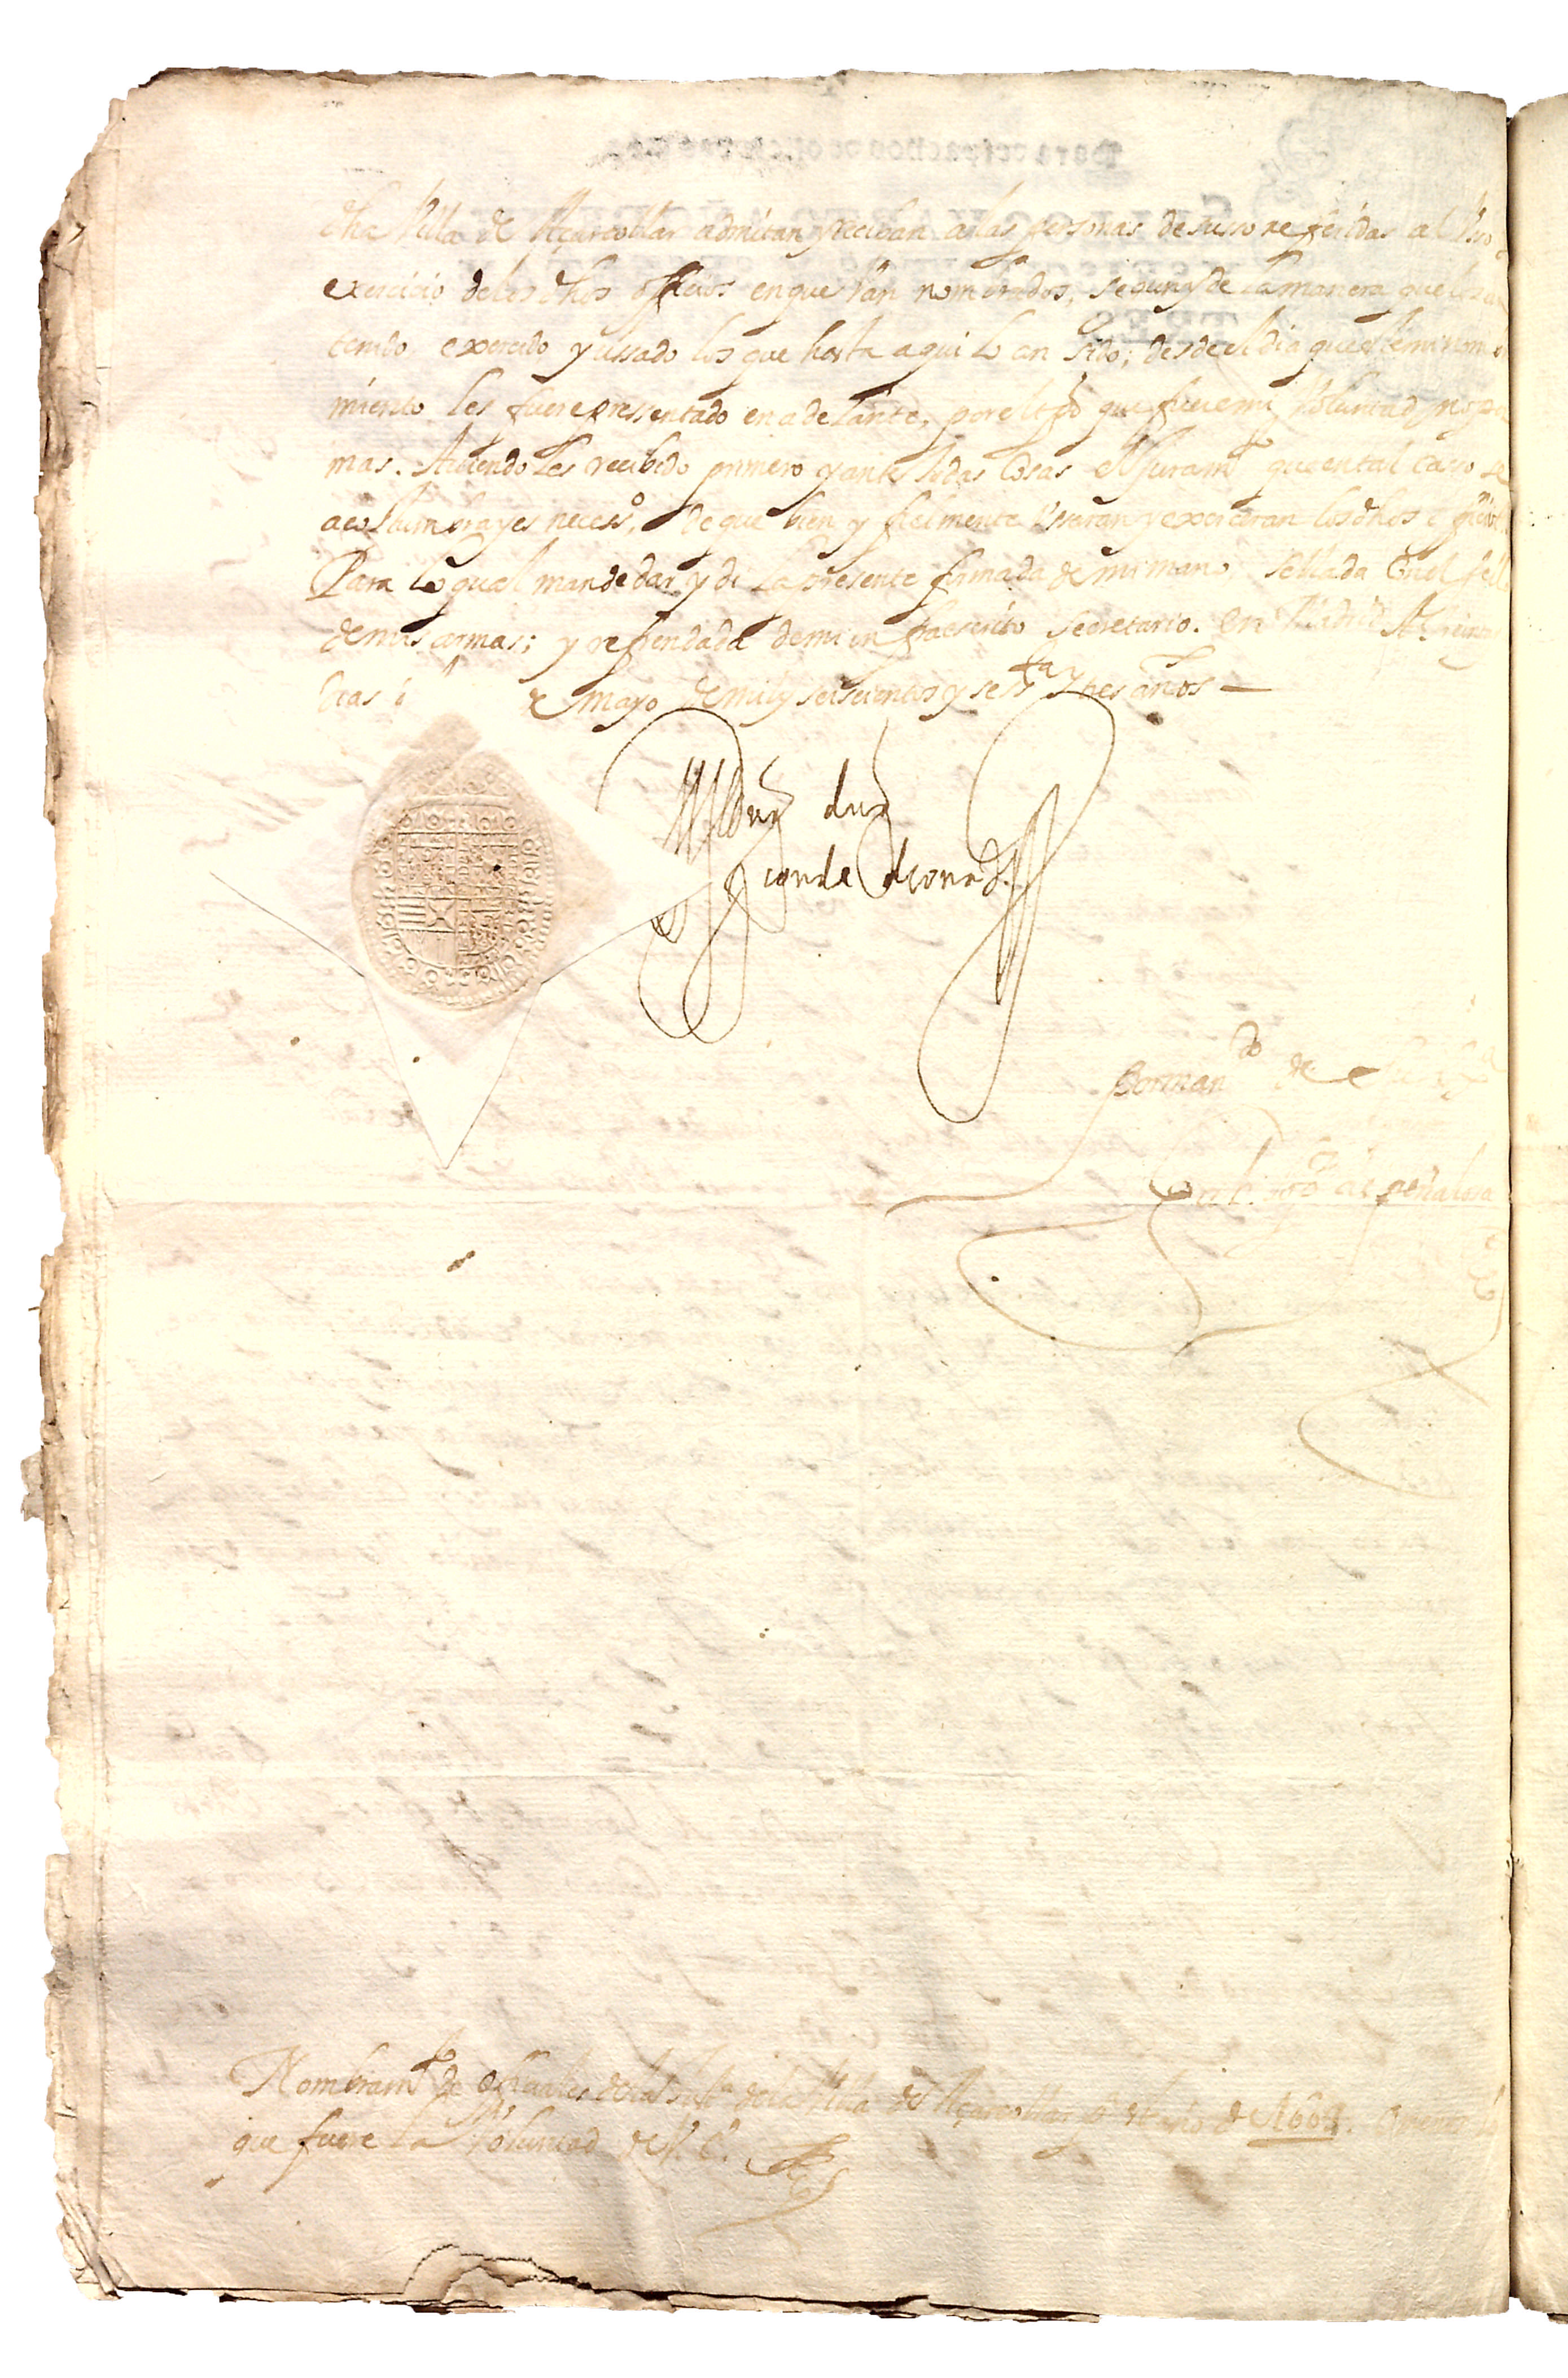 dha Villa de Açarcollar admitan y reciban a las personas de susso referidas al Vso y
exercicio de los dhos officios en que Van nombrados, segun y de la manera que los an
tenido exercido y ussado los que hasta aqui lo an sido; desde el dia que este mi nombra
miento les fuere pressentado en adelante, por el tpo que fuere mi Voluntad y no por
mas. Auiendoles recibido primero y ante todas Cosas el Juramto que en tal casso se
acostumbra y es necesso, de que bien y fielmente Vssaran y exerceran los dhos officios.
Para lo qual mande dar y di la presente firmada de mi mano, sellada Con el sello
de mis armas; y refrendada de mi infraescrito secretario. en Madrid A treinta
dias de mayo de mil y seiscientos y sesta y tres años —
duq
conde
Por mando de
de peñalosa
Nombramto de officiales de la Justa de la Villa de Açarcollar
que fuere la Voluntad de V. E.